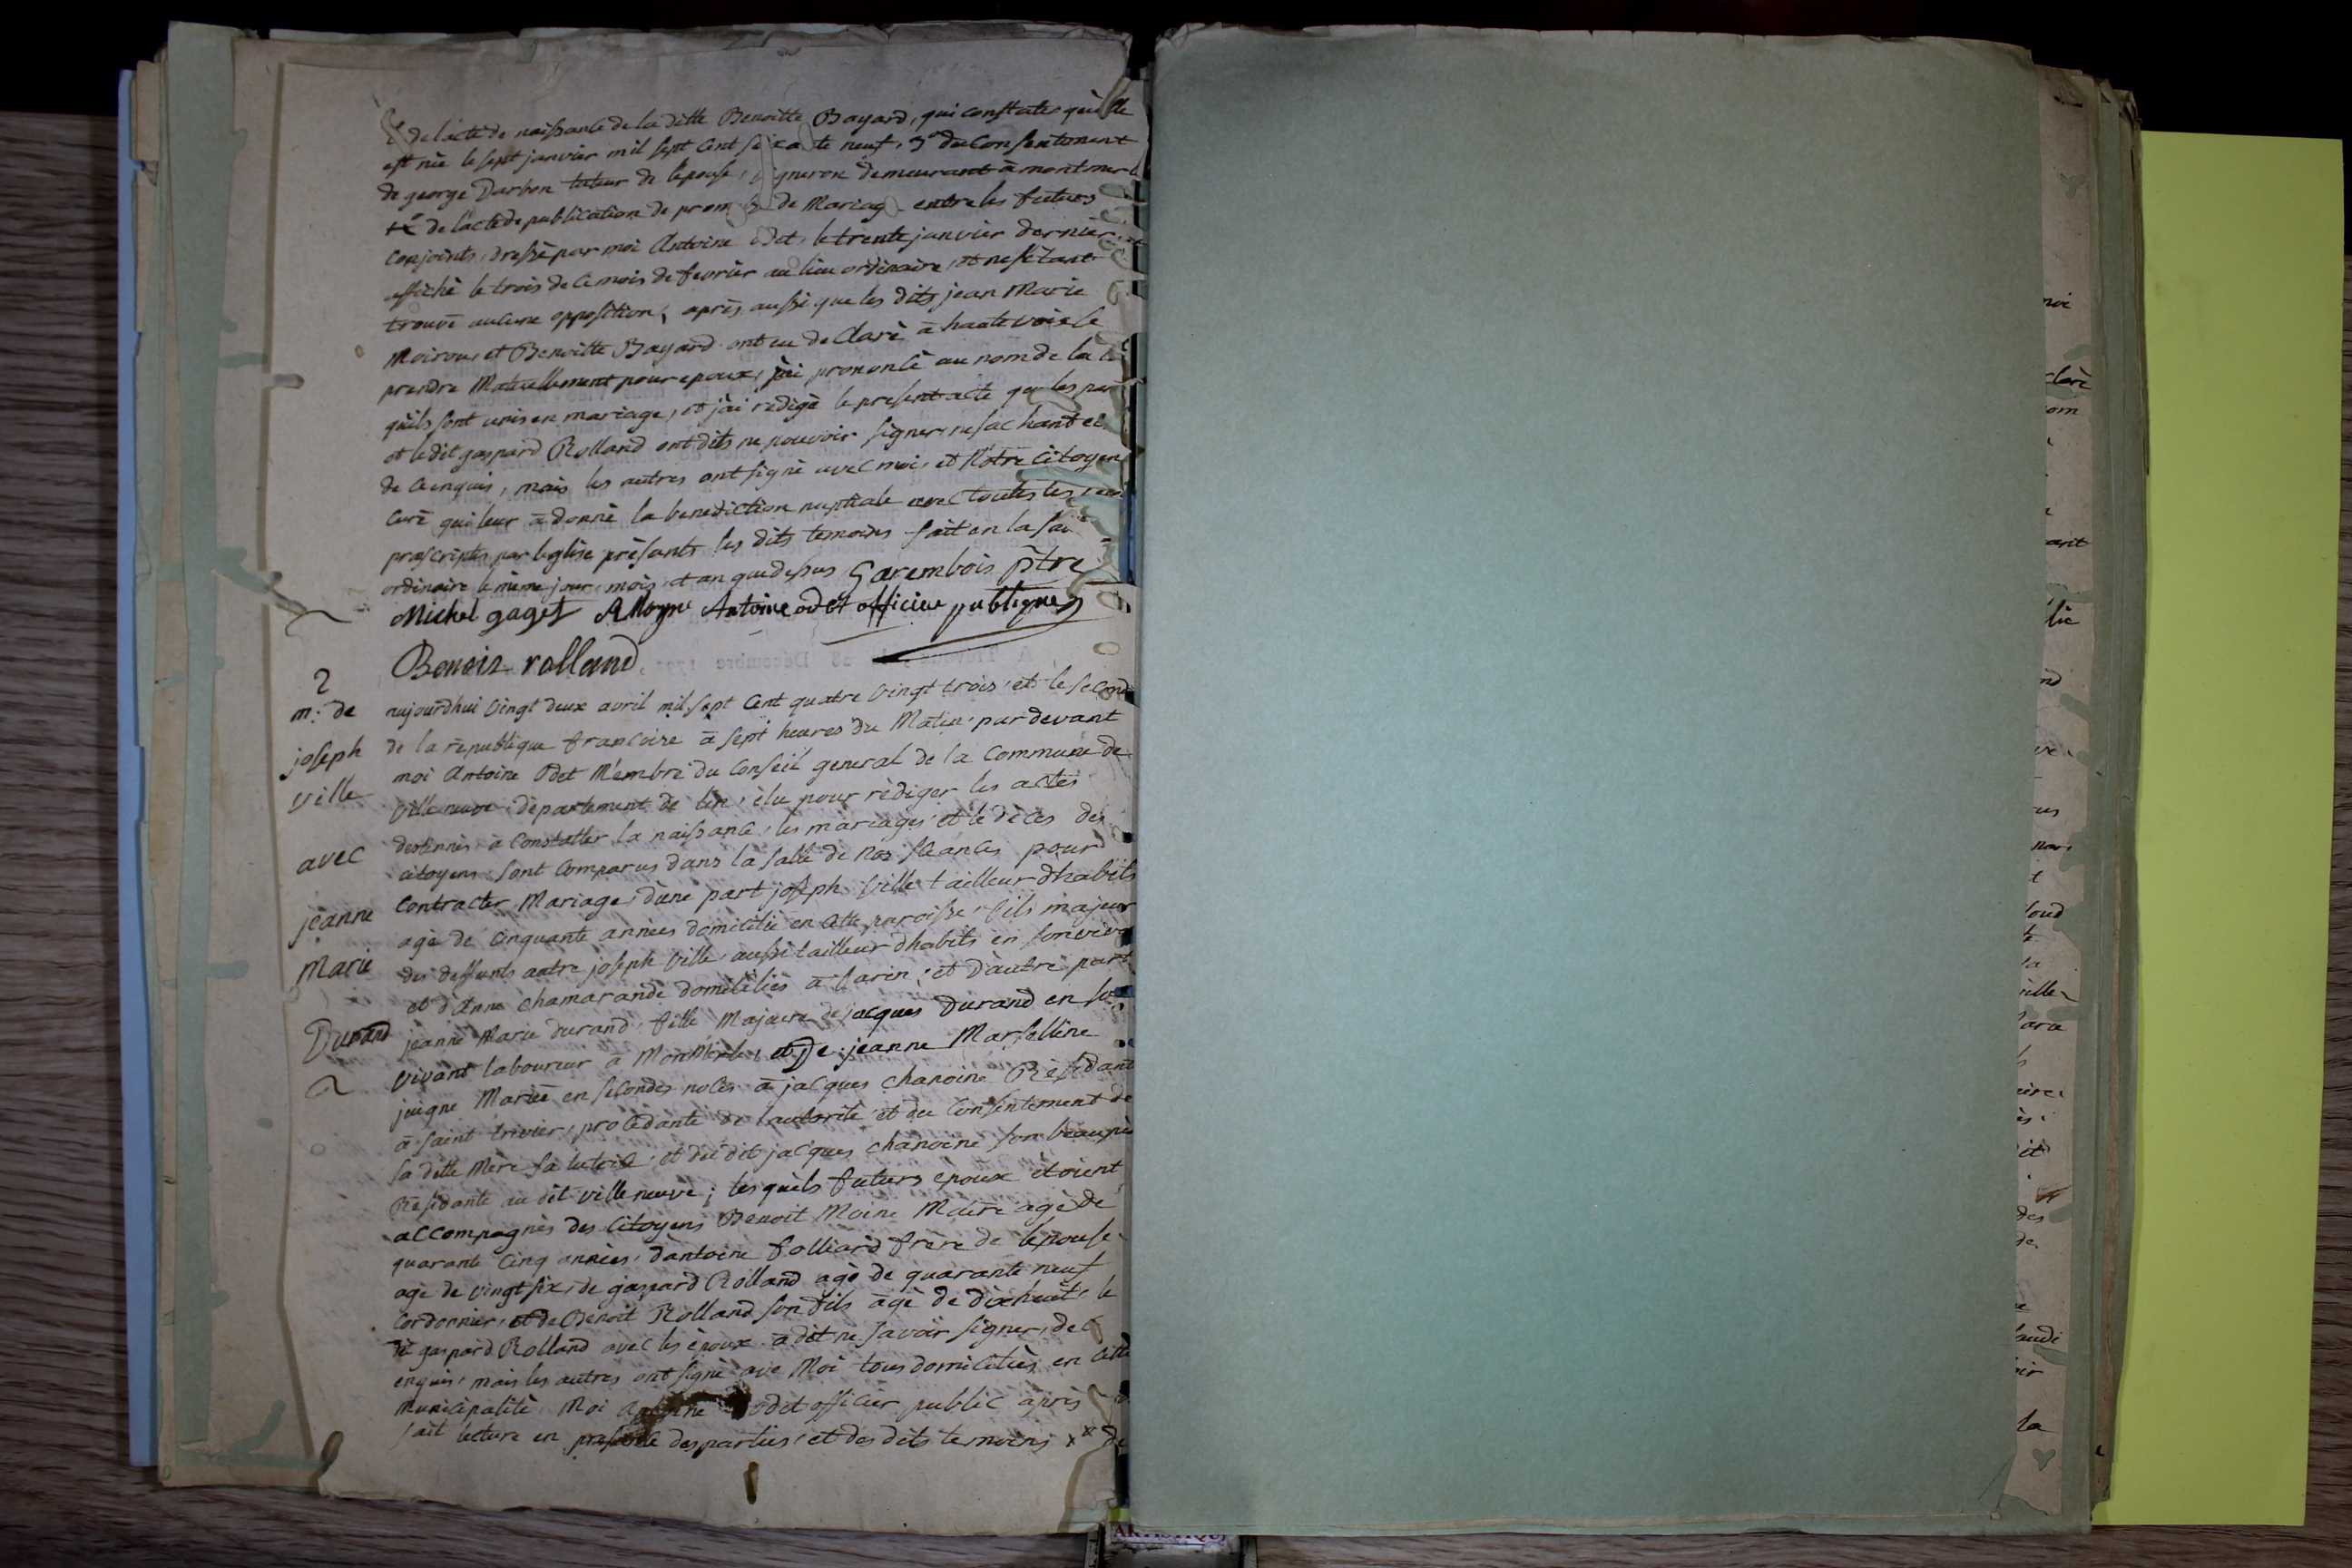 de lacte de naissance de la ditte Benoitte Bayard, qui constate quelle
est née le sept janvier mil sept cent soixante neuf, 3° du Consentement
de george Darbon tuteur de lepouse, vigneron demeurant à montmerle
4° de lacte de publication de promesse de Mariage entre les futurs
Conjoints, dressé par moi Antoine odet, le trente janvier dernier, et
affiché le trois de ce mois de fevrier au lieu ordinaire, et ne setant
trouvé aucune opposition, après aussi que les dits jean Marie
Moiroux et Benoitte Bayard ont eu declaré à haute voix se
prendre Mutuellement pour epoux, jai prononcé au nom de la
quils sont unis en mariage, et jai redigé le present acte que les
et le dit gaspard Rolland ont dits ne pouvoir signer, ne sachant
de ce enquis, mais les autres ont signé avec moi, et Nôtre Citoyen
Curé qui leur à donné la benediction nuptiale avec toutes les
prescriptes par leglise présents les dits temoins fait en la
ordinaire le même jour, mois, et an que dessus Garembois ptre
Michel gaget Alloyne Antoine odet officier publique
Benoit rolland
2
m: de joseph ville avec jeanne Marie Durand
aujourdhui vingt deux avril mil sept cent quatre vingt trois, et le second
de la république francoise à sept heures du Matin, par devant
moi Antoine Odet Membre du Conseil general de la Commune de
Villeneuve département de lin, élu pour rédiger les actes
destinnés à Constatter la naissance, les mariages et le décès des
citoyens sont Comparus dans la salle de nos séances pour
Contracter Mariage, dune part joseph ville tailleur dhabits
agé de cinquante années domicilié en cette paroisse, fils majeur
des deffunts autre joseph ville aussi tailleur dhabits en son viva
et dAnne chamarande domiciliés à Sarin, et dautre part
jeanne Marie durand fille Majeure de jacques Durand en so
vivant laboureur à MonMerle, et De jeanne Marselline
juigne Mariée en secondes noces à jacques chanoine Résidant
à saint trivier, procédante de lautorité et du Consentement de
sa ditte Mère sa tutrice, et du dit jacques chanoine son beaupè
Résidante au dit villeneuve; les quels futurs epoux étoient
accompagnés des Citoyens Benoit Moine Maire agé de
quarante Cinq années, dantoine folliard frère de lepouse
agé de vingt six, de gaspard Rolland agé de quarante neuf
Cordonnier, et de Benoit Rolland son fils âgé de dixhuit, le
dit gaspard Rolland avec les époux à dit ne savoir signer, de
enquis, mais les autres ont signé avec Moi tous domiciliés en cette
Municipalité. Moi Antoine odet officier public après
fait lecture en présence des parties, et des dits temoins